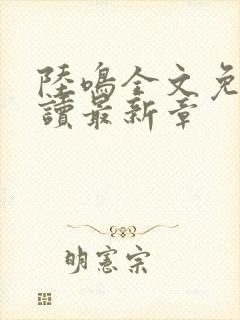 陸鳴全文免
讀最新章
明憲宗